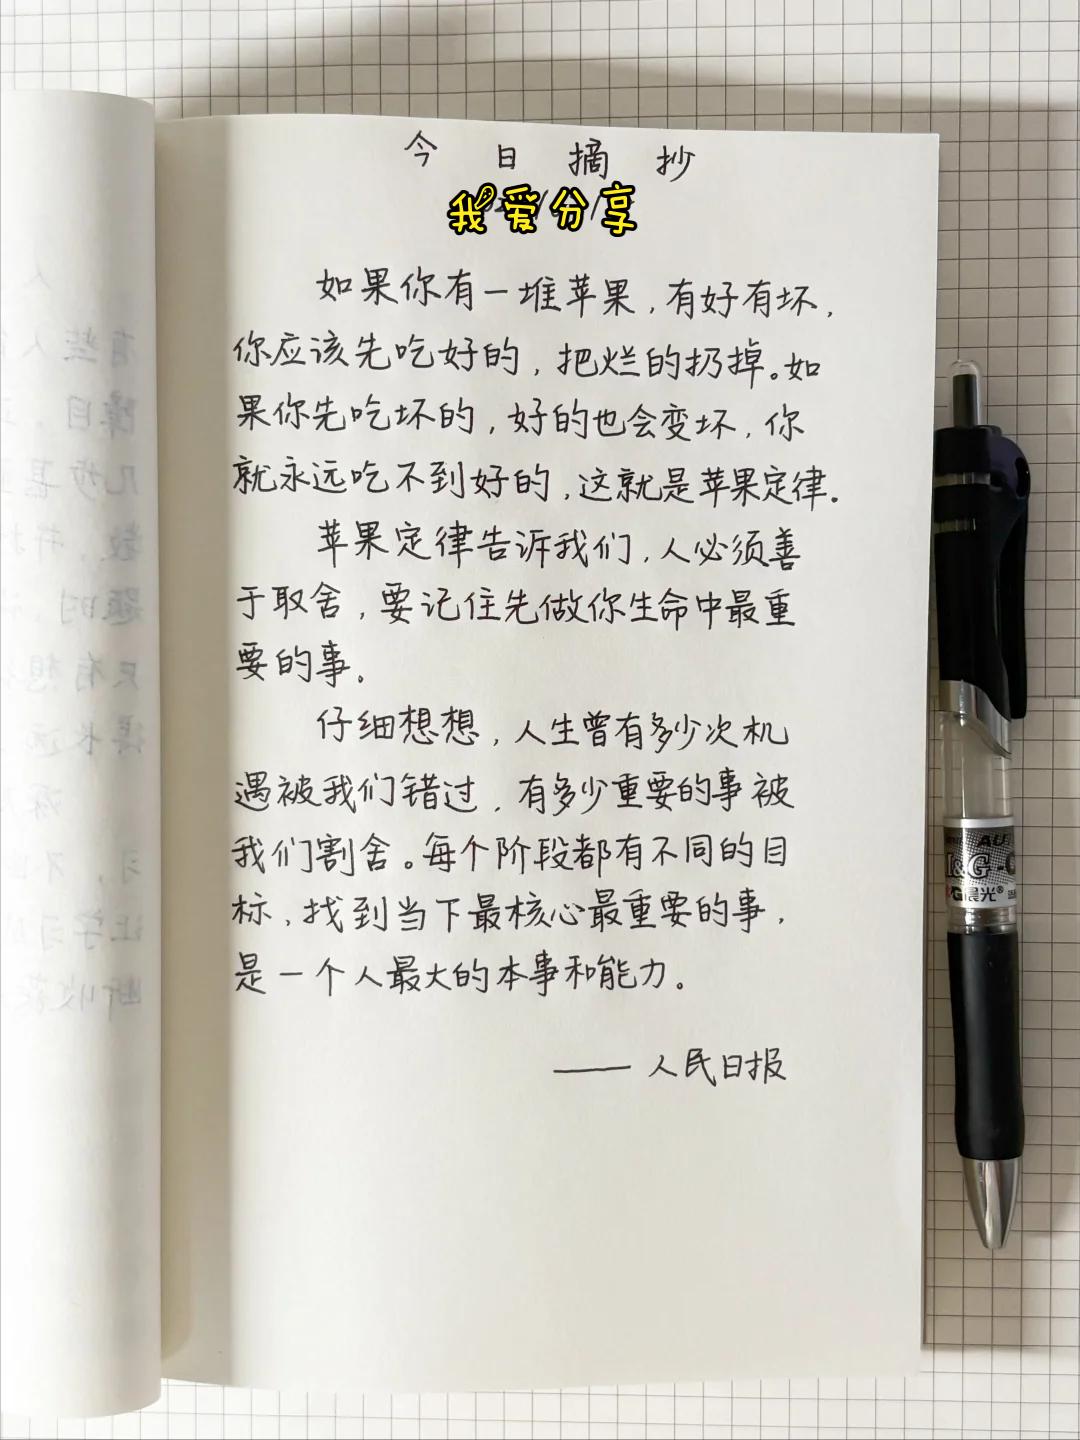 今日摘抄
我爱分享
如果你有一堆苹果，有好有坏，
你应该先吃好的，把烂的扔掉。如
果你先吃坏的，好的也会变坏，你
就永远吃不到好的，这就是苹果定律。
苹果定律告诉我们，人必须善
于取舍，要记住先做你生命中最重
要的事。
仔细想想，人生曾有多少次机
遇被我们错过，有多少重要的事被
我们割舍。每个阶段都有不同的目
标，找到当下最核心最重要的事，
是一个人最大的本事和能力。
—— 人民日报
M&G晨光®